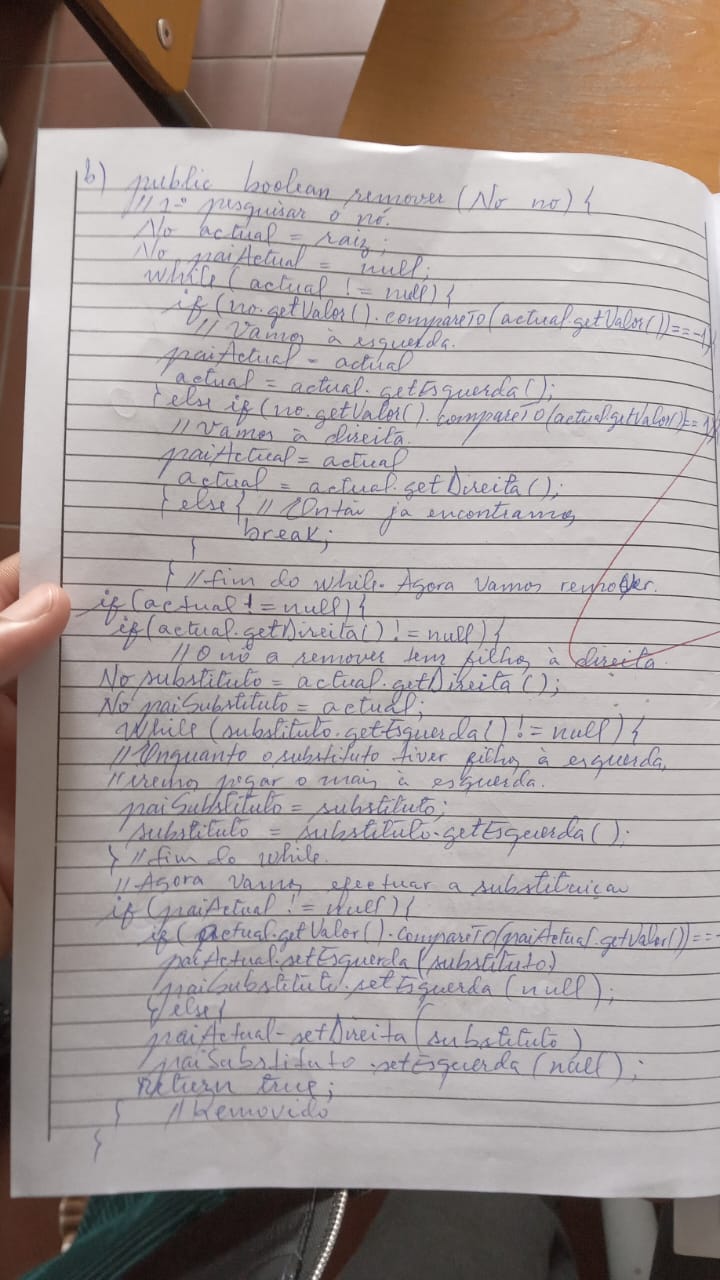 b) public boolean remover (No no) {
// 1º pesquisar o nó.
No actual = raiz;
No paiActual = null;
while (actual != null) {
if (no.getValor().compareTo(actual.getValor())==-1)
// Vamos à esquerda.
paiActual = actual
actual = actual.getEsquerda();
} else if (no.getValor().compareTo(actual.getValor()==1)
// Vamos à direita.
paiActual = actual
actual = actual.getDireita();
} else { // Então já encontramos
break;
}
} // fim do while. Agora vamos remover.
if (actual != null) {
if (actual.getDireita() != null) {
// O nó a remover tem filhos à direita.
No substituto = actual.getDireita();
No paiSubstituto = actual;
While (substituto.getEsquerda() != null) {
// Enquanto o substituto tiver filhos à esquerda,
// iremos pegar o mais à esquerda.
paiSubstituto = substituto;
substituto = substituto.getEsquerda();
} // fim do while.
// Agora vamos efectuar a substituiçao
if (paiActual != null) {
if (actual.getValor().compareTo(paiActual.getValor())==-
paiActual.setEsquerda (substituto)
paiSubstituto.setEsquerda (null);
} else {
paiActual.setDireita (substituto)
paiSubstituto.setEsquerda (null);
return true;
} // Removido
}